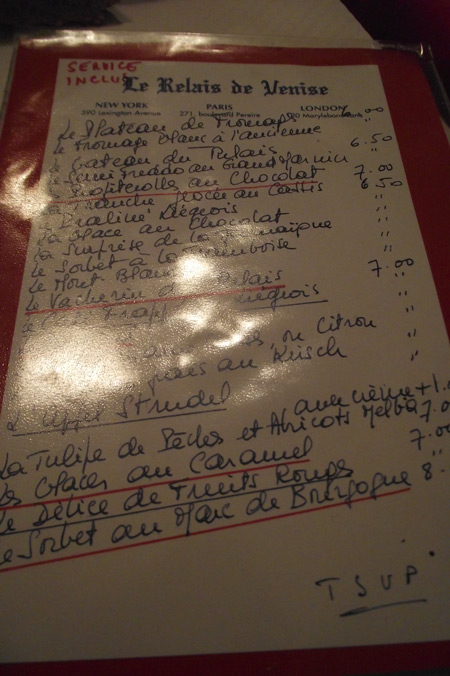 SERVICE
INCLUS
Le Relais de Venise
NEW YORK PARIS LONDON
590 Lexington Avenue 271 boulevard Pereire 120 Marylebone
Le Plateau de Fromages
Le Fromage blanc à l'ancienne
Le Gateau du Relais 6.50
Le Semi Freddo au Grand Marnier "
Le Profiterolles au Chocolat 7.00
La Tranche glacée au Cassis 6.50
Le Praliné Liégeois "
La Glace au Chocolat "
La Surprise de la Jamaïque "
Le Sorbet à la Framboise "
Le Mont Blanc "
Le Vacherin du Relais 7.00
Le Liégeois "
ou Citron "
au Kirsch "
L'Apfel Strudel
avec crème +1.
La Tulipe de Pêches et Abricots Melba 7.0
Les Glaces au Caramel 7.00
Le Délice de Fruits Rouges "
Le Sorbet au Marc de Bourgogne 8.
TSVP